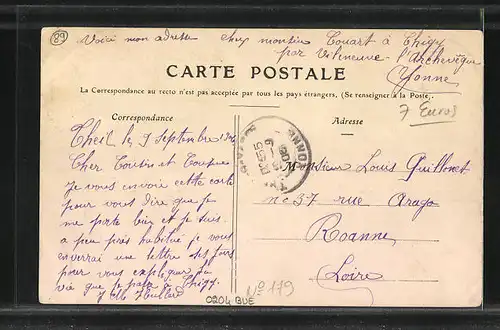 89
Voici mon adresse chez monsieur Touart à Thigy
par Villeneuve l'Archevêque
Yonne
CARTE POSTALE
La Correspondance au recto n'est pas acceptée par tous les pays étrangers. (Se renseigner à la Poste).
7 Euros
Correspondance
Adresse
Theil le, 9 Septembre
Cher Cousin et Cousine
Je vous envoie cette carte
pour vous dire que je
me porte bien et je suis
a peu près habitué je vous
enverrai une lettre ses jours
pour vous expliquer la
vie que je passe à Thigy.
Monsieur Louis Guillonet
No 37 rue Arago
Roanne
Loire
C204 BUE
No 179